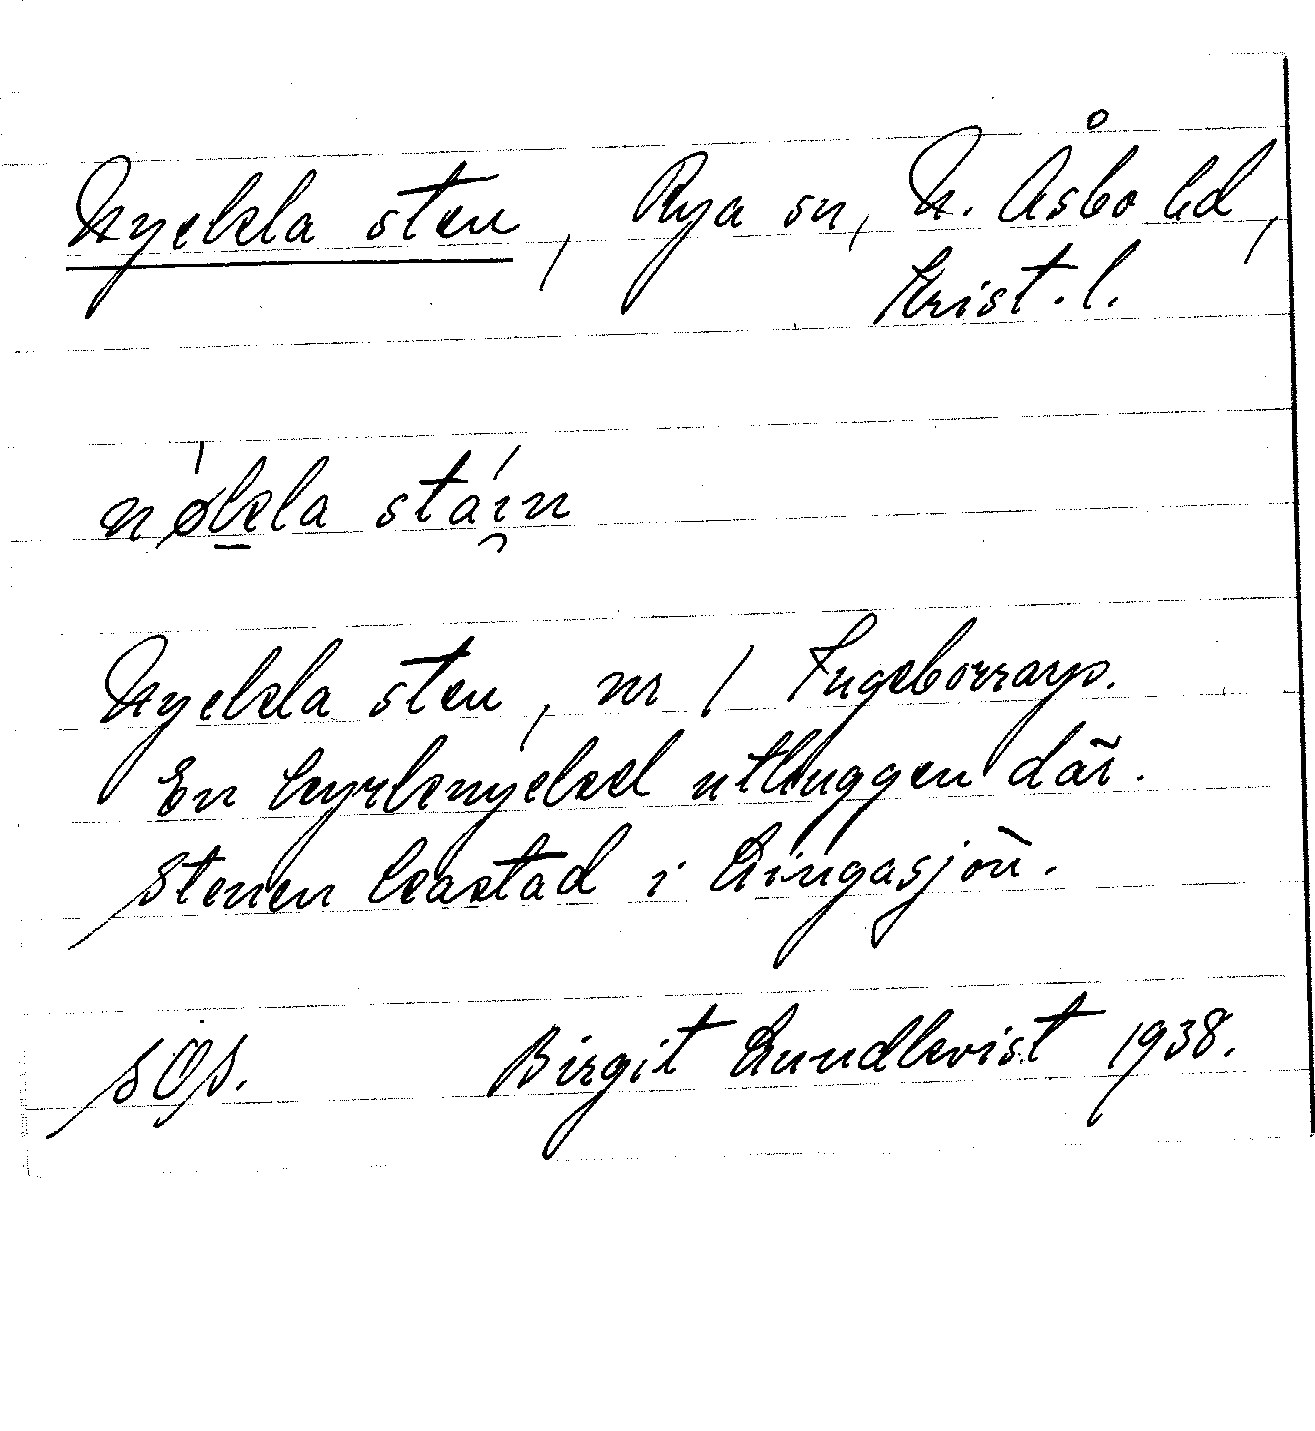 Nyckla sten, Rya sn, N. Åsbo hd,
Krist. l.
nøkla stáın
Nyckla sten, nr 1 Ingeborrarp.
En kyrknyckel uthuggen där.
Stenen kastad i Lingasjön.
SOS. Birgit Lundkvist 1938.